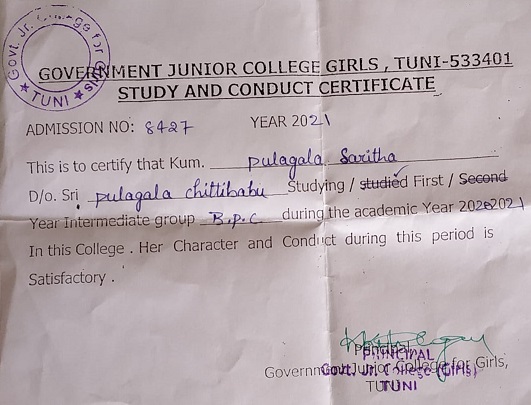 Govt. Jr. College for Girls
★ TUNI ★
GOVERNMENT JUNIOR COLLEGE GIRLS , TUNI-533401
STUDY AND CONDUCT CERTIFICATE
ADMISSION NO: 8427 YEAR 2021
This is to certify that Kum. pulagala Saritha
D/o. Sri pulagala chittibabu Studying / studied First / Second
Year Intermediate group B.p.c during the academic Year 2020 2021
In this College . Her Character and Conduct during this period is
Satisfactory .
Principal
PRINCIPAL
Government Junior College for Girls,
Govt. Jr. College (Girls)
TUNI
TUNI